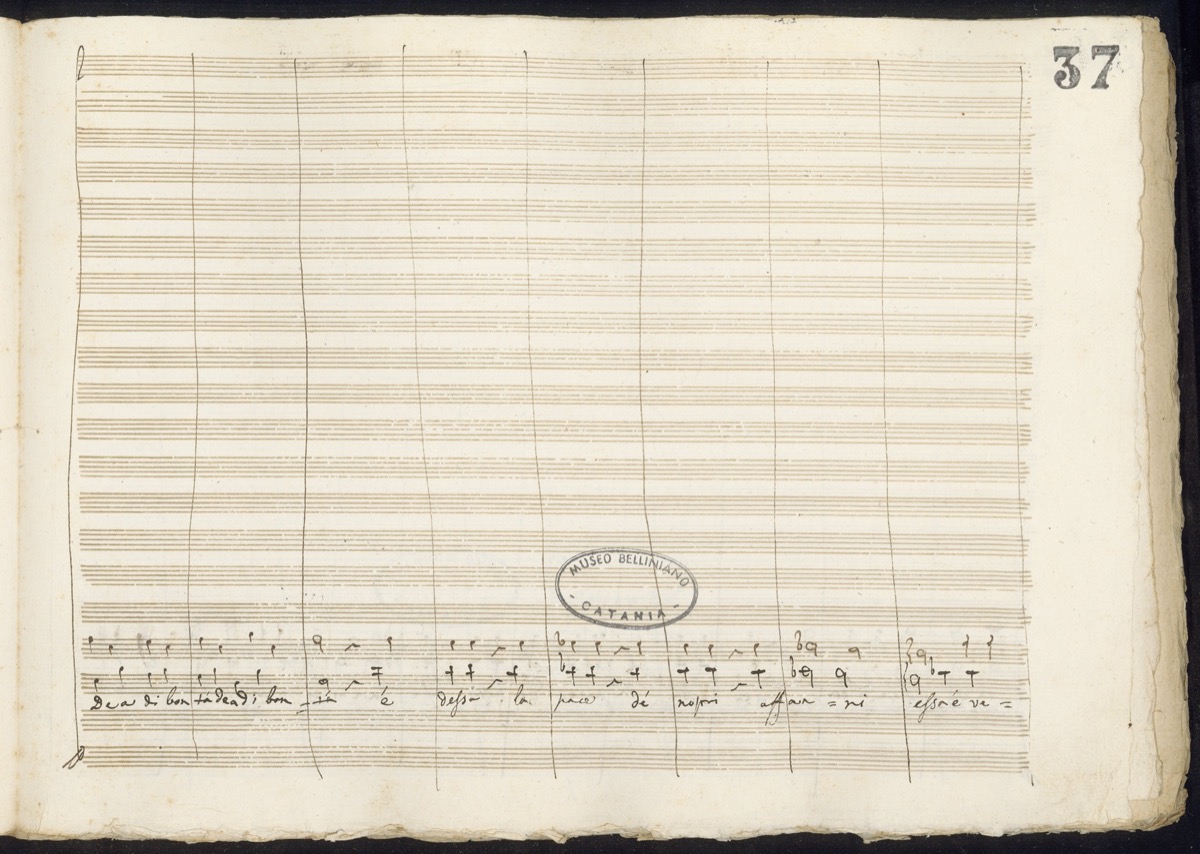 37
MUSEO BELLINIANO
- CATANIA -
Dea di bon tà dea di bon = tà é dessa la pace dé nostri affan = ni essa é ve =